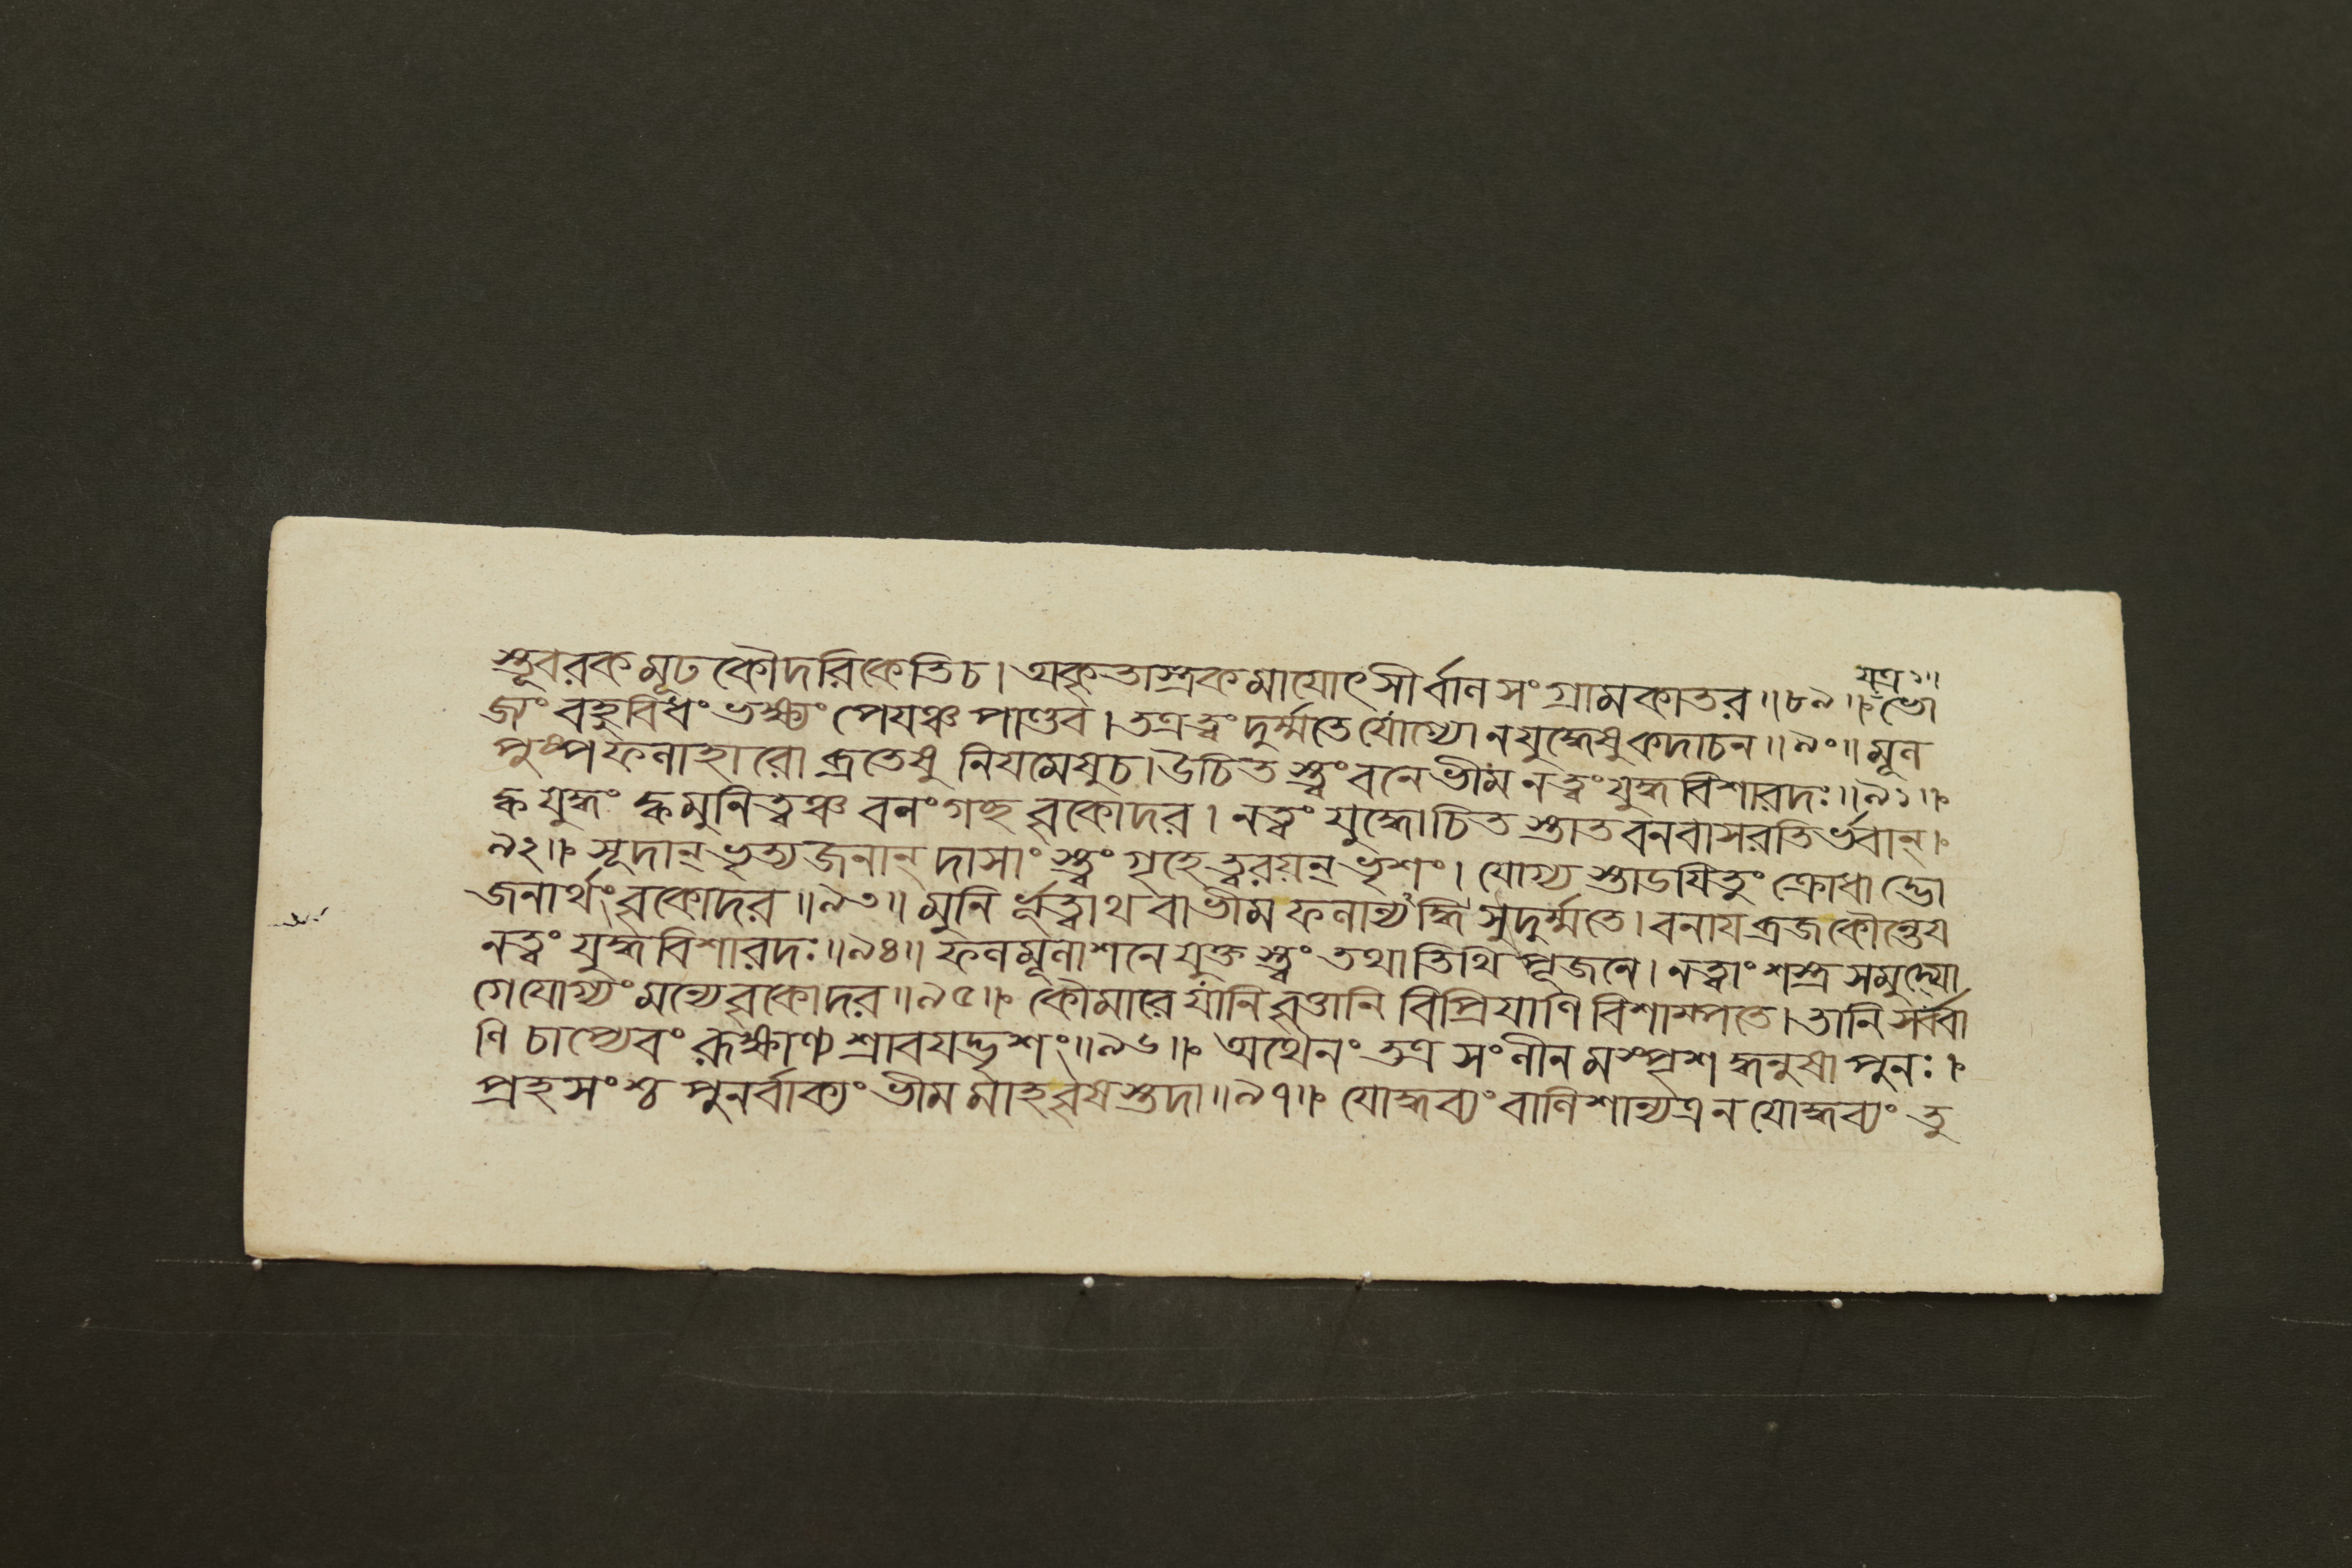 যত্র১॥
স্তূবরক মূঢ কৌদরিকেতি চ । অকৃতাস্ত্রক মা যোৎসীর্ব্বান সংগ্রামকাতর ॥৮৯॥ ভো
জ্যং বহুবিধং ভক্ষ্যং পেযঞ্চ পাণ্ডব । তত্র ত্বং দুর্ম্মতে যোগ্যো ন যুদ্ধেষু কদাচন ॥৯০॥ মূল
পুষ্পফলাহারো ব্রতেষু নিযমেষু চ । উচিত স্ত্বং বনে ভীম ন ত্বং যুদ্ধবিশারদঃ ॥৯১॥
ক্ব যুদ্ধং ক্ব মুনিত্বঞ্চ বনং গচ্ছ বৃকোদর । ন ত্বং যুদ্ধোচিত স্তাত বনবাসরতির্ভবান্ ।
৯২॥ সূদান্ ভৃত্যজনান্ দাসাং স্ত্বং গৃহে ত্বরয়ন্ ভৃশং । যোগ্য স্তাডযিতুং ক্রোধাদ্ভো
জনার্থং বৃকোদর ॥৯৩॥ মুনির্ভূত্বাথবা ভীম ফলান্যদ্ধি সুদুর্ম্মতে । বনায ব্রজ কৌন্তেয
ন ত্বং যুদ্ধবিশারদঃ ॥৯৪॥ ফলমূলাশনে যুক্ত স্ত্বং তথাতিথিপূজনে । ন ত্বাং শস্ত্রসমুদ্যো
গে যোগ্যং মন্যে বৃকোদর ॥৯৫॥ কৌমারে যানি বৃত্তানি বিপ্রিযাণি বিশাম্পতে । তানি সর্ব্বা
ণি চাপ্যেবং রূক্ষাণ্য শ্রাবযদ্ভৃশং ॥৯৬॥ অথৈনং তত্র সংলীন মস্পৃশ দ্ধনুষা পুনঃ ।
প্রহসংশ্চ পুনর্ব্বাক্যং ভীম মাহ বৃষ স্তদা ॥৯৭॥ যোদ্ধব্যং বালিশান্যত্র ন যোদ্ধব্যং তু